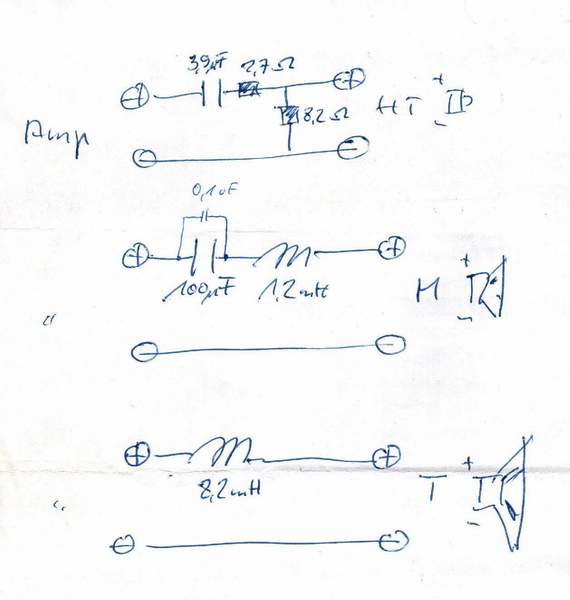 3,9µF 2,7Ω
+ + +
8,2Ω HT
Amp -
- -
0,1uF
+ +
100µF 1,2mH M +
" -
- -
+ + +
8,2mH T
" -
- -